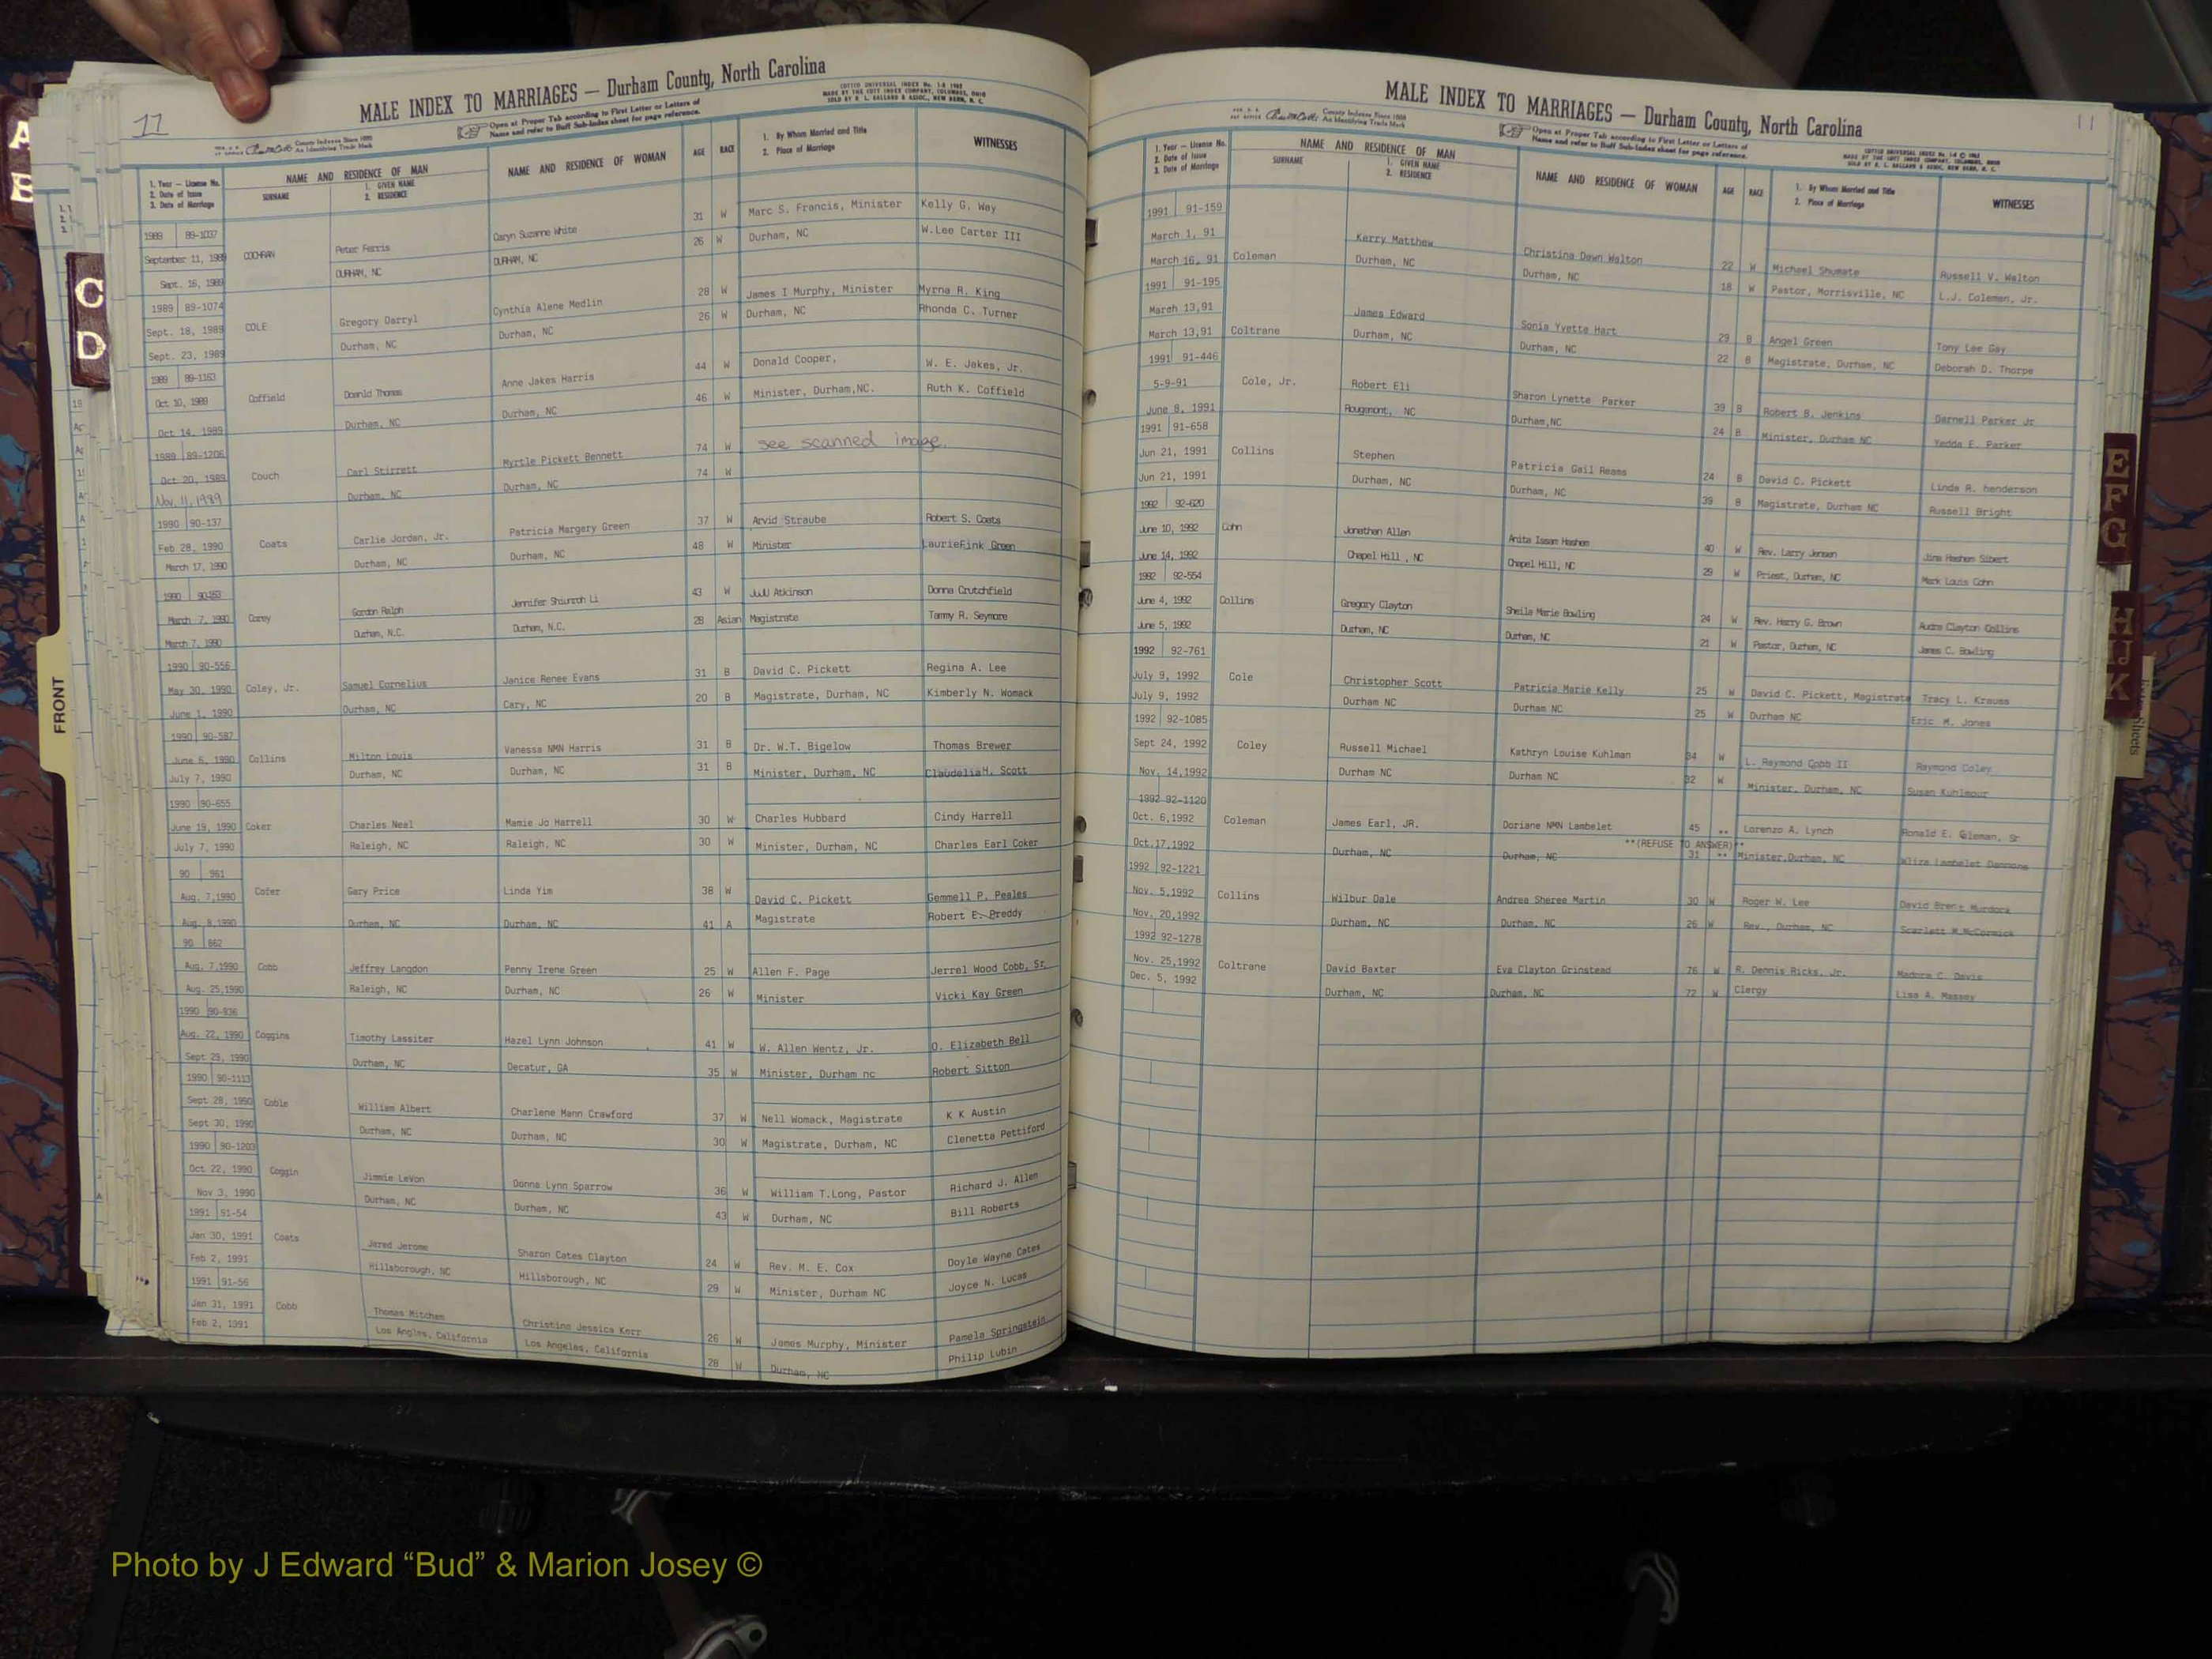 11
MALE INDEX TO MARRIAGES — Durham County, North Carolina
Open at Proper Tab according to First Letter or Letters of
Name and refer to Buff Sub-Index sheet for page reference.
1. Year — License No.
2. Date of Issue
3. Date of Marriage
NAME AND RESIDENCE OF MAN
SURNAME
1. GIVEN NAME
2. RESIDENCE
NAME AND RESIDENCE OF WOMAN
AGE
RACE
1. By Whom Married and Title
2. Place of Marriage
WITNESSES
1989 89-1037 Peter Ferris Caryn Suzanne White 31 W Marc S. Francis, Minister Kelly G. Way
September 11, 1989 COCHRAN DURHAM, NC DURHAM, NC 26 W Durham, NC W.Lee Carter III
Sept. 16, 1989
1989 89-1074 Gregory Darryl Cynthia Alene Medlin 28 W James I Murphy, Minister Myrna R. King
Sept. 18, 1989 COLE Durham, NC Durham, NC 26 W Durham, NC Rhonda C. Turner
Sept. 23, 1989
1989 89-1163 Doanld Thomas Anne Jakes Harris 44 W Donald Cooper, W. E. Jakes, Jr.
Oct 10, 1989 Coffield Durham, NC Durham, NC 46 W Minister, Durham,NC. Ruth K. Coffield
Oct 14, 1989
1989 89-1206 Carl Stirrett Myrtle Pickett Bennett 74 W see scanned image.
Oct 20, 1989 Couch Durham, NC Durham, NC 74 W
Nov. 11, 1989
1990 90-137 Carlie Jordan, Jr. Patricia Margery Green 37 W Arvid Straube Robert S. Coats
Feb 28, 1990 Coats Durham, NC Durham, NC 48 W Minister LaurieFink Green
March 17, 1990
1990 Gordon Ralph Jennifer Shiunroh Li 43 W JuJu Atkinson Donna Crutchfield
March 7, 1990 Corey Durham, N.C. Durham, N.C. 28 Asian Magistrate Tammy R. Seymore
March 7, 1990
1990 90-556 Samuel Cornelius Janice Renee Evans 31 B David C. Pickett Regina A. Lee
May 30, 1990 Coley, Jr. Durham, NC Cary, NC 20 B Magistrate, Durham, NC Kimberly N. Womack
June 1, 1990
1990 90-587 Milton Louis Vanessa NMN Harris 31 B Dr. W.T. Bigelow Thomas Brewer
June 6, 1990 Collins Durham, NC Durham, NC 31 B Minister, Durham, NC ClaudeliaH. Scott
July 7, 1990
1990 90-655 Charles Neal Mamie Jo Harrell 30 W Charles Hubbard Cindy Harrell
June 19, 1990 Coker Raleigh, NC Raleigh, NC 30 W Minister, Durham, NC Charles Earl Coker
July 7, 1990
90 961 Gary Price Linda Yim 38 W David C. Pickett Gemmell P. Peales
Aug. 7,1990 Cofer Durham, NC Durham, NC 41 A Magistrate Robert E. Preddy
Aug. 8,1990
90 862 Jeffrey Langdon Penny Irene Green 25 W Allen F. Page Jerrel Wood Cobb, Sr.
Aug. 7,1990 Cobb Raleigh, NC Durham, NC 26 W Minister Vicki Kay Green
Aug. 25,1990
1990 90-936 Timothy Lassiter Hazel Lynn Johnson 41 W W. Allen Wentz, Jr. O. Elizabeth Bell
Aug. 22, 1990 Coggins Durham, NC Decatur, GA 35 W Minister, Durham nc Robert Sitton
Sept 29, 1990
1990 90-1113 William Albert Charlene Mann Crawford 37 W Nell Womack, Magistrate K K Austin
Sept 28, 1990 Coble Durham, NC Durham, NC 30 W Magistrate, Durham, NC Clenetta Pettiford
Sept 30, 1990
1990 90-1203 Jimmie LeVon Donna Lynn Sparrow 36 W William T.Long, Pastor Richard J. Allen
Oct 22, 1990 Coggin Durham, NC Durham, NC 43 W Durham, NC Bill Roberts
Nov 3, 1990
1991 91-54 Jared Jerome Sharon Cates Clayton 24 W Rev. M. E. Cox Doyle Wayne Cates
Jan 30, 1991 Coats Hillsborough, NC Hillsborough, NC 29 W Minister, Durham NC Joyce N. Lucas
Feb 2, 1991
1991 91-56 Thomas Mitchem Christine Jessica Kerr 26 W James Murphy, Minister Pamela Springstein
Jan 31, 1991 Cobb Los Angles, California Los Angeles, California 28 W Durham, NC Philip Lubin
Feb 2, 1991
11
MALE INDEX TO MARRIAGES — Durham County, North Carolina
Open at Proper Tab according to First Letter or Letters of
Name and refer to Buff Sub-Index sheet for page reference.
1. Year — License No.
2. Date of Issue
3. Date of Marriage
NAME AND RESIDENCE OF MAN
SURNAME
1. GIVEN NAME
2. RESIDENCE
NAME AND RESIDENCE OF WOMAN
AGE
RACE
1. By Whom Married and Title
2. Place of Marriage
WITNESSES
1991 91-159 Kerry Matthew Christina Dawn Walton 22 W Michael Shumate Russell V. Walton
March 1, 91 Coleman Durham, NC Durham, NC 18 W Pastor, Morrisville, NC L.J. Coleman, Jr.
March 16, 91
1991 91-195 James Edward Sonia Yvette Hart 29 B Angel Green Tony Lee Gay
March 13,91 Coltrane Durham, NC Durham, NC 22 B Magistrate, Durham, NC Deborah D. Thorpe
March 13,91
1991 91-446 Robert Eli Sharon Lynette Parker 39 B Robert B. Jenkins Darnell Parker Jr
5-9-91 Cole, Jr. Rougemont, NC Durham,NC 24 B Minister, Durham NC Yedda E. Parker
June 8, 1991
1991 91-658 Stephen Patricia Gail Reams 24 B David C. Pickett Linda R. henderson
Jun 21, 1991 Collins Durham, NC Durham, NC 39 B Magistrate, Durham NC Russell Bright
Jun 21, 1991
1992 92-620 Jonathan Allen Anita Issam Hashem 40 W Rev. Larry Jensen Hashem Silbert
June 10, 1992 Cohn Chapel Hill , NC Chapel Hill, NC 29 W Priest, Durham, NC Mark Louis Cohn
June 14, 1992
1992 92-554 Gregory Clayton Sheila Marie Bowling 24 W Rev. Harry G. Brown Audra Clayton Collins
June 4, 1992 Collins Durham, NC Durham, NC 21 W Pastor, Durham, NC James C. Bowling
June 5, 1992
1992 92-761 Christopher Scott Patricia Marie Kelly 25 W David C. Pickett, Magistrate Tracy L. Krauss
July 9, 1992 Cole Durham NC Durham NC 25 W Durham NC Eric M. Jones
July 9, 1992
1992 92-1085 Russell Michael Kathryn Louise Kuhlman 34 W L. Raymond Cobb II Raymond Coley
Sept 24, 1992 Coley Durham NC Durham NC 32 W Minister, Durham, NC Susan
Nov. 14,1992
1992 92-1120 James Earl, JR. Doriane NMN Lambelet 45 ** Lorenzo A. Lynch Ronald E. Coleman, Sr
Oct. 6,1992 Coleman **(REFUSE TO ANSWER)**
Oct.17,1992 Durham, NC Durham, NC 31 ** Minister,Durham, NC Lambelet
1992 92-1221 Wilbur Dale Andrea Sheree Martin 30 W Roger W. Lee David Brent Murdock
Nov. 5,1992 Collins Durham, NC Durham, NC 26 W Rev., Durham, NC Scarlett M.McCormick
Nov. 20,1992
1992 92-1278 David Baxter Eva Clayton Grinstead 76 W R. Dennis Ricks, Jr. Madora C. Davis
Nov. 25,1992 Coltrane Durham, NC Durham, NC 72 W Clergy Lisa A. Massey
Dec. 5, 1992
A
B
C
D
FRONT
E
F
G
H
IJ
K
Sheets
Photo by J Edward “Bud” & Marion Josey ©